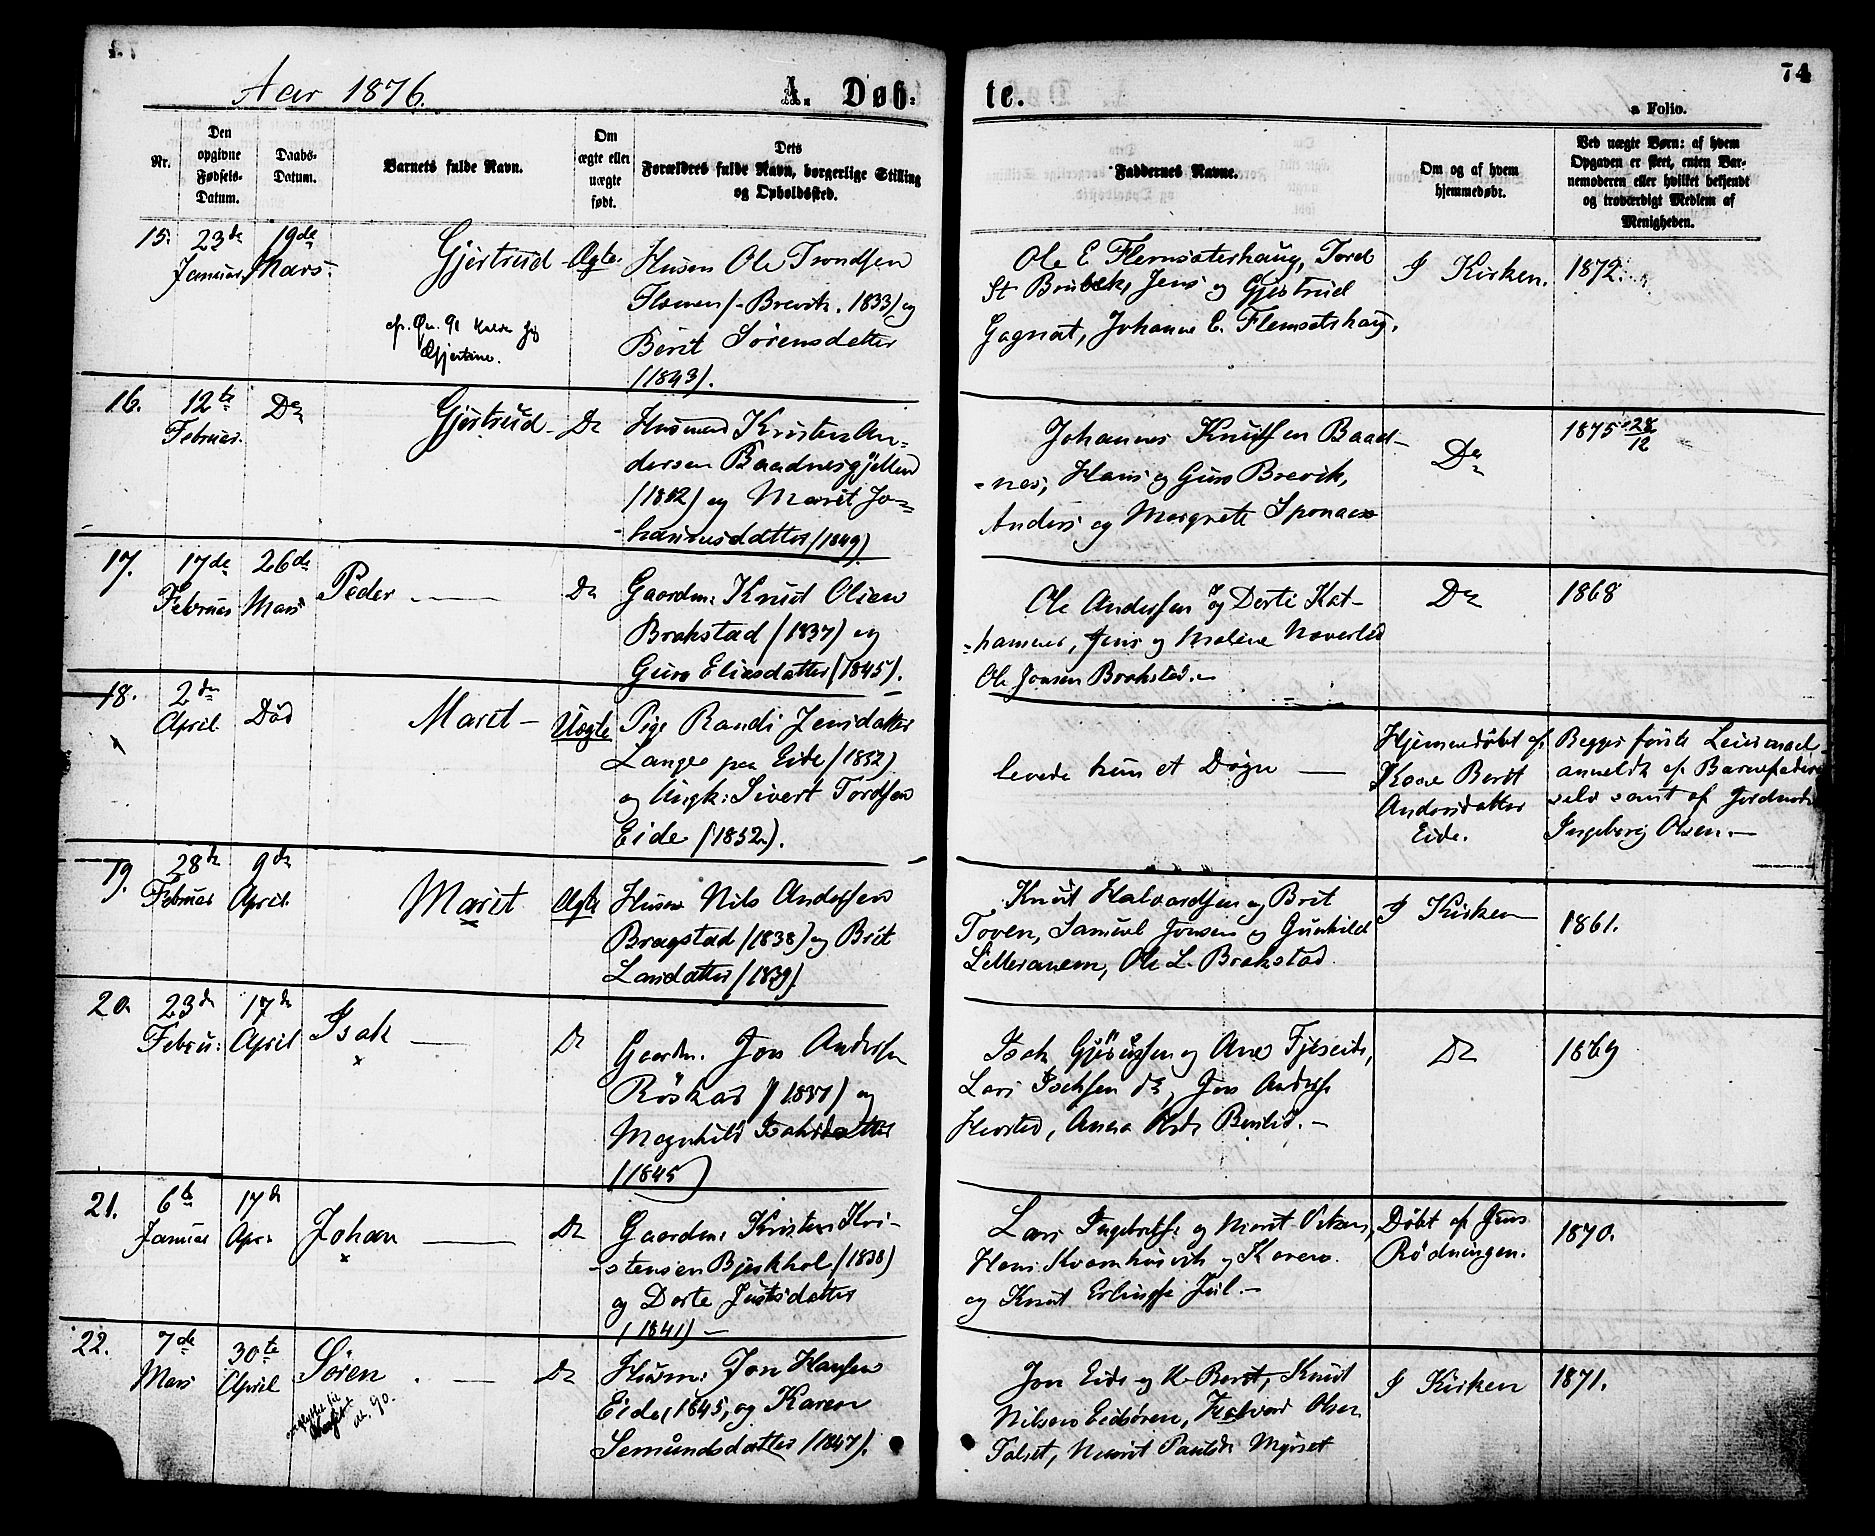 74
Aar 1876.
A. Døb-
te.
a Folio.
Nr.
Den
opgivne
Fødsels-
Datum.
Daabs-
Datum.
Barnets fulde Navn.
Om
ægte eller
uægte
født.
Dets
Forældres fulde Navn, borgerlige Stilling
og Opholdssted.
Faddernes Navne.
Om og af hvem
hjemmedøbt.
Ved uægte Børn: af hvem
Opgaven er skeet, enten Bar-
nemoderen eller hvilket bekjendt
og troværdigt Medlem af
Menigheden.
15.
23de
Januar
19de
Mars.
Gjertrud
Gjertine.
Ægte.
Husm Ole Trondsen
Brevik. 1833) og
Berit Sørensdatter
(1843).
Ole E Flemsæterhaug, Tord
St Jens og Gjertrud
Gagnat, Johanne E. Flemsætshaug.
I Kirken.
1872.
16.
12te
Februar.
Do
Gjertrud
Do
Husmand Kristen An-
dersen Baadnesgjellen
og Marit Jo-
hannesdatter (1849)
Johannes Knudsen Baad-
nes, Hans og Guro Brevik,
Anders og Margrete
Do
1875 28/12
17.
17de
Februar
26de
Mars
Peder
Do
Gaardm: Knud Olsen
Brakstad (1837) og
Guro Eliasdatter (1845).
Ole Andersen og Dorte Kat-
hammer, Jens og Malene
Ole Jonsen Brakstad.
Do
1868
18.
2den
April
Død
Marit
Uægte
Pige Randi Jensdatter
Langeo paa Eide (1852)
og Ungk: Sivert Tordsen
Eide (1852).
levede kun et Døgn
Hjemmedøbt af
Kone Berit
Andersdatter
Eide.
Begges første Leiermaal
anmeldt af Barnefader
selv samt af Jordmoder
Ingeborg Olsen.
19.
28de
Februar
9de
April
Marit
Ægte
Husm Nils Andersen
Bragstad (1838) og Brit
Larsdatter (1839)
Knut Halvardsen og Brit
Toven, Samuel Jonsen og Gunhild
Ole L. Brakstad
I Kirken
1861.
20.
23de
Febru:
17de
April
Isak
Do
Gaardm. Jon Andersen
Røskar (1837) og
Magnhild Isaksdatter
(1845)
Isak og Ane
Lars Isaksen do, Jon Anders
Anna
Do
1869
21.
6te
Januar
17de
Apr:
Johan
Do
Gaardm: Kristen Kri-
stensen Bjerkhol (1838)
og Dorte Justsdatter
(1841)
Lars og Marit
Hans og Karen
og Knut Erlingse Jul.
Døbt af Jens
Rødningen.
1870.
22.
7de
Mars
30te
April
Søren
Do
Husm: Jon Hansen
Eide, 1845, og Karen
Semundsdatter (1847).
Jon Eide og K. Berit, Knud
Nilsen Eidsøren, Halvor Olsen
Talset, Marit Myrset
I Kirken
1871.